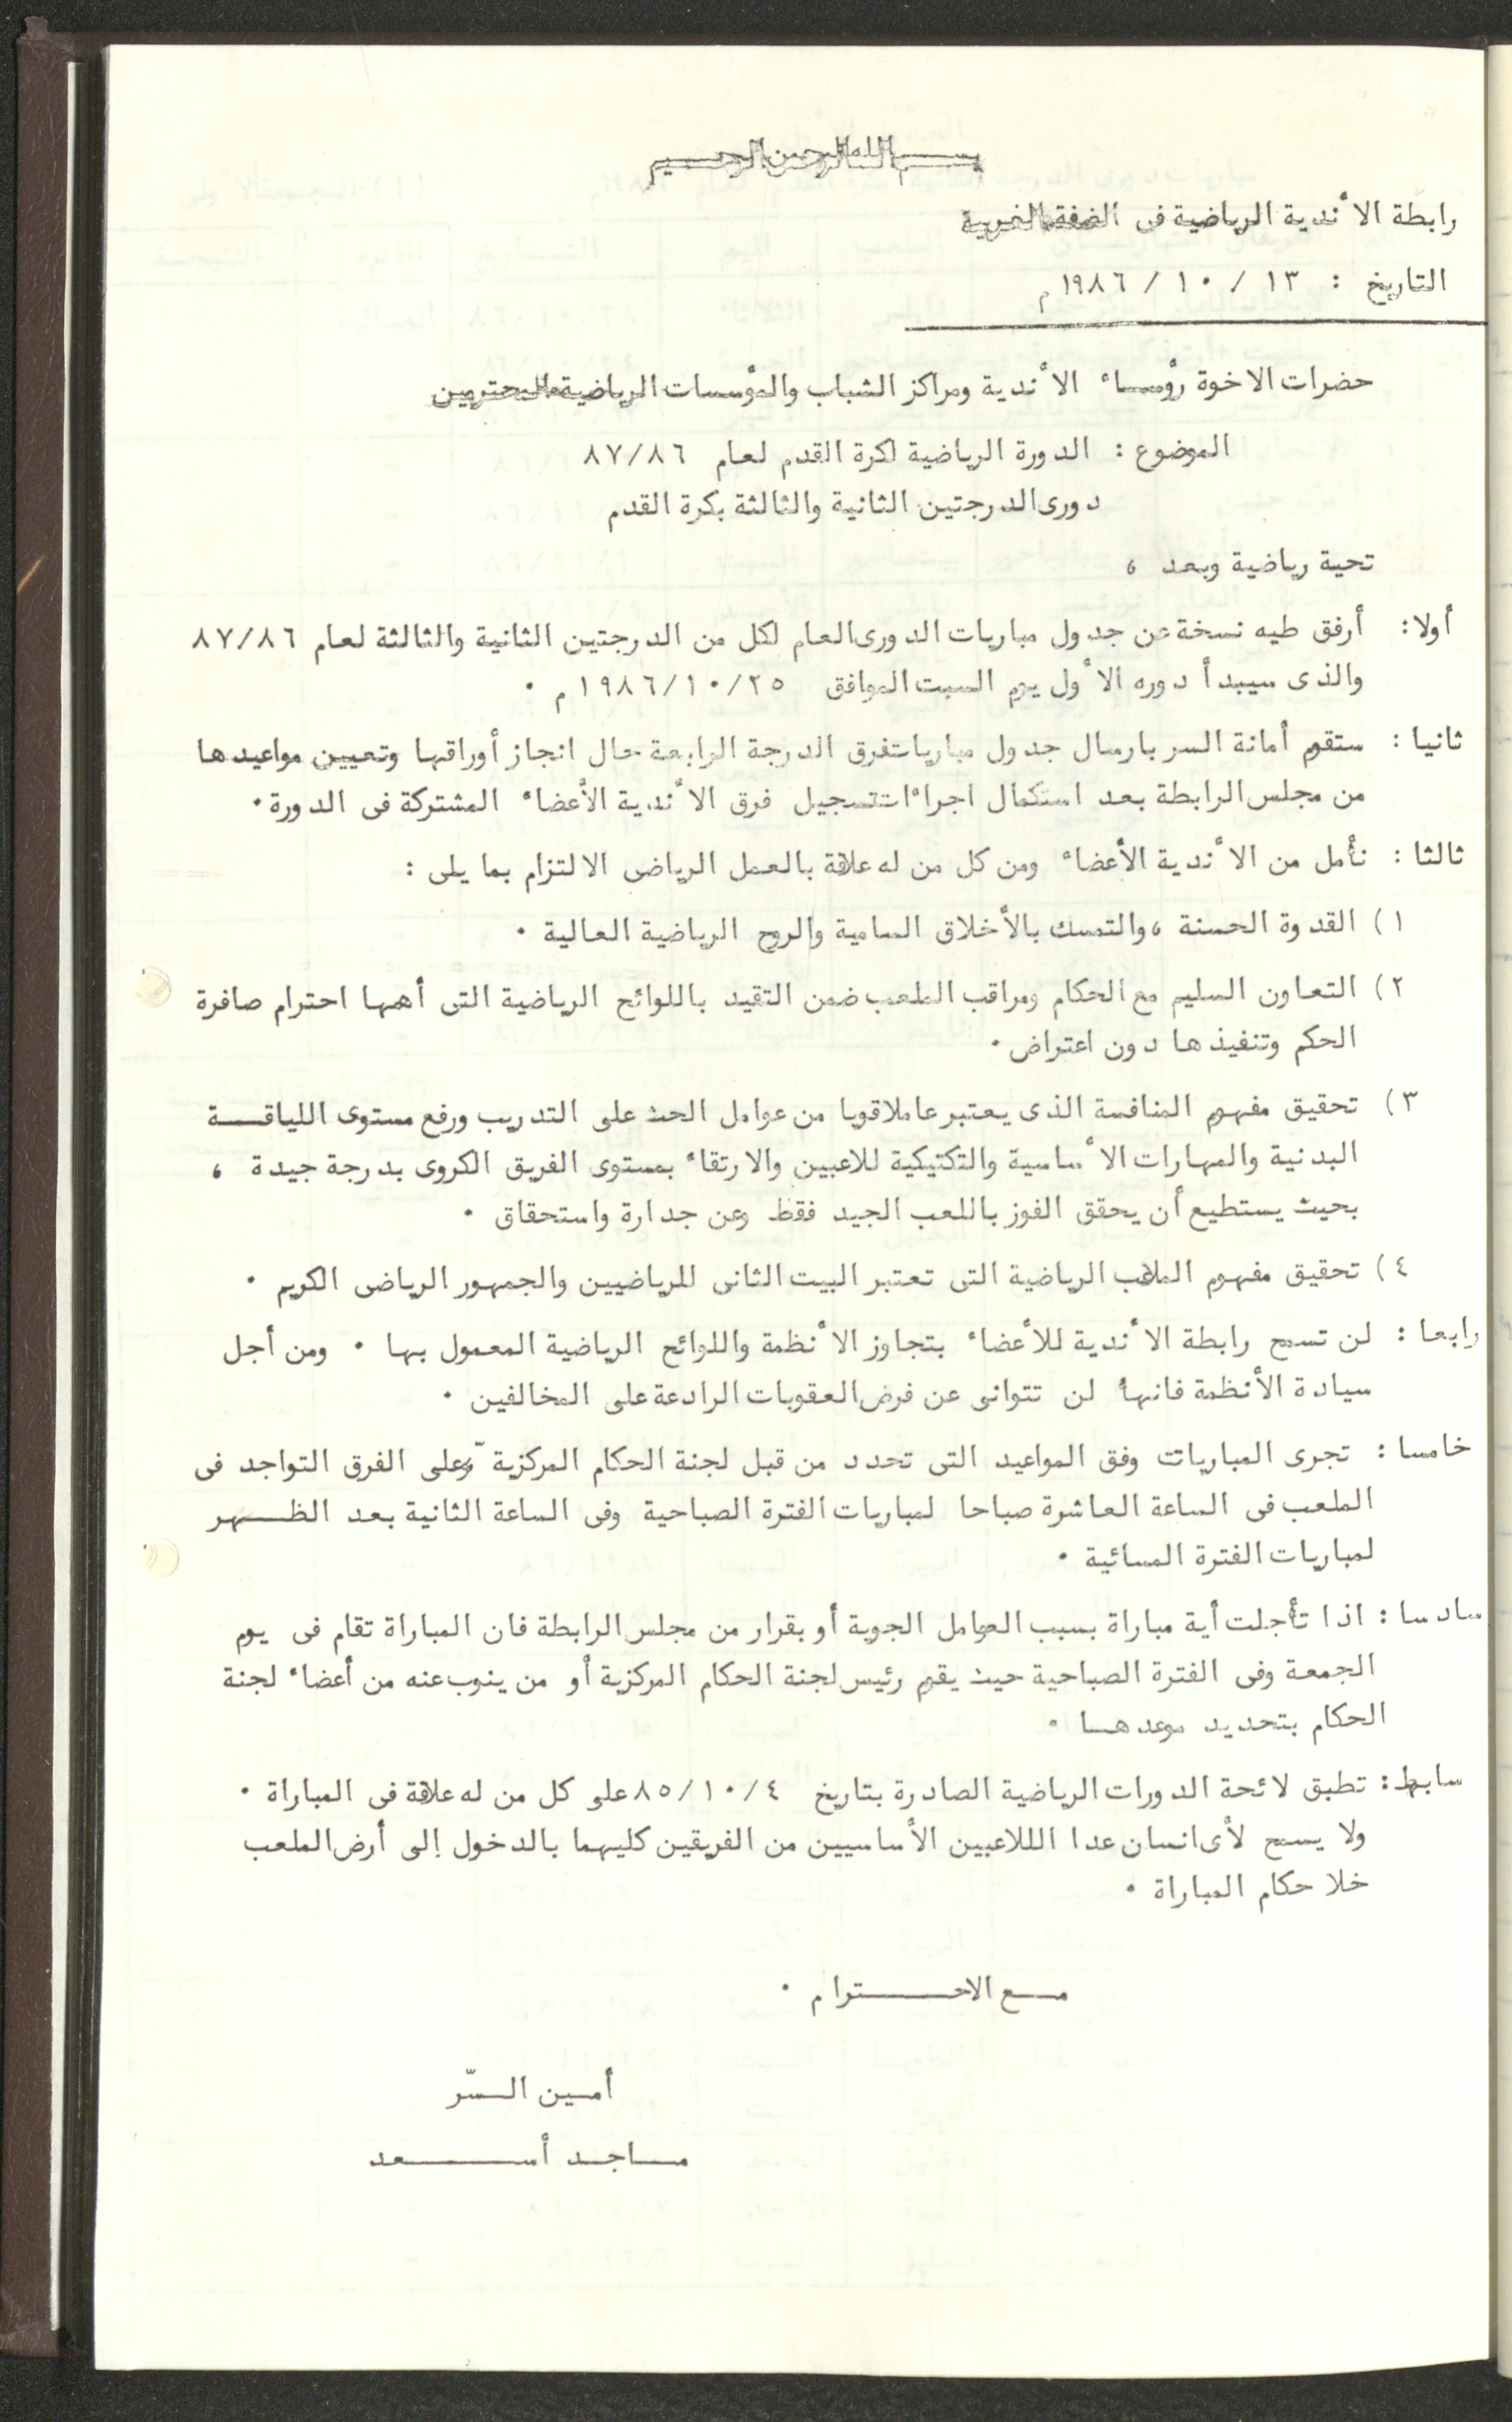 بسم الله الرحمن الرحيم
رابطة الأندية الرياضية فى الضفة الغربية
التاريخ : ١٣ / ١٠ / ١٩٨٦م
حضرات الاخوة رؤساء الأندية ومراكز الشباب والمؤسسات الرياضية المحترمين
الموضوع : الدورة الرياضية لكرة القدم لعام ٨٧/٨٦
دورى الدرجتين الثانية والثالثة بكرة القدم
تحية رياضية وبعد ،
أولا : أرفق طيه نسخة عن جدول مباريات الدورى العام لكل من الدرجتين الثانية والثالثة لعام ٨٧/٨٦
والذى سيبدأ دوره الأول يوم السبت الموافق ١٩٨٦/١٠/٢٥م .
ثانيا : ستقوم أمانة السر بارسال جدول مباريات فرق الدرجة الرابعة حال انجاز أوراقها وتعيين مواعيدها
من مجلس الرابطة بعد استكمال اجراءات تسجيل فرق الأندية الأعضاء المشتركة فى الدورة .
ثالثا : نأمل من الأندية الأعضاء ومن كل من له علاقة بالعمل الرياضى الالتزام بما يلى :
١) القدوة الحسنة ، والتمسك بالأخلاق السامية والروح الرياضية العالية .
٢) التعاون السليم مع الحكام ومراقب الملعب ضمن التقيد باللوائح الرياضية التى أهمها احترام صافرة
الحكم وتنفيذها دون اعتراض .
٣) تحقيق مفهوم المنافسة الذى يعتبر عاملا قويا من عوامل الحث على التدريب ورفع مستوى اللياقـــة
البدنية والمهارات الأساسية والتكتيكية للاعبين والارتقاء بمستوى الفريق الكروى بدرجة جيدة ،
بحيث يستطيع أن يحقق الفوز باللعب الجيد فقط وعن جدارة واستحقاق .
٤) تحقيق مفهوم الملاعب الرياضية التى تعتبر البيت الثانى للرياضيين والجمهور الرياضى الكريم .
رابعا : لن تسمح رابطة الأندية للأعضاء بتجاوز الأنظمة واللوائح الرياضية المعمول بها . ومن أجل
سيادة الأنظمة فانها لن تتوانى عن فرض العقوبات الرادعة على المخالفين .
خامسا : تجرى المباريات وفق المواعيد التى تحدد من قبل لجنة الحكام المركزية وعلى الفرق التواجد فى
الملعب فى الساعة العاشرة صباحا لمباريات الفترة الصباحية وفى الساعة الثانية بعد الظـــهر
لمباريات الفترة المسائية .
سادسا : اذا تأجلت أية مباراة بسبب العوامل الجوية أو بقرار من مجلس الرابطة فان المباراة تقام فى يوم
الجمعة وفى الفترة الصباحية حيث يقوم رئيس لجنة الحكام المركزية أو من ينوب عنه من أعضاء لجنة
الحكام بتحديد موعدهـا .
سابعا : تطبق لائحة الدورات الرياضية الصادرة بتاريخ ٨٥/١٠/٤ على كل من له علاقة فى المباراة .
ولا يسمح لأى انسان عدا الللاعبين الأساسيين من الفريقين كليهما بالدخول إلى أرض الملعب
خلا حكام المباراة .
مـــع الاحـــــــترام .
أمـين الـسّر
مـــاجـد أســـــــعد